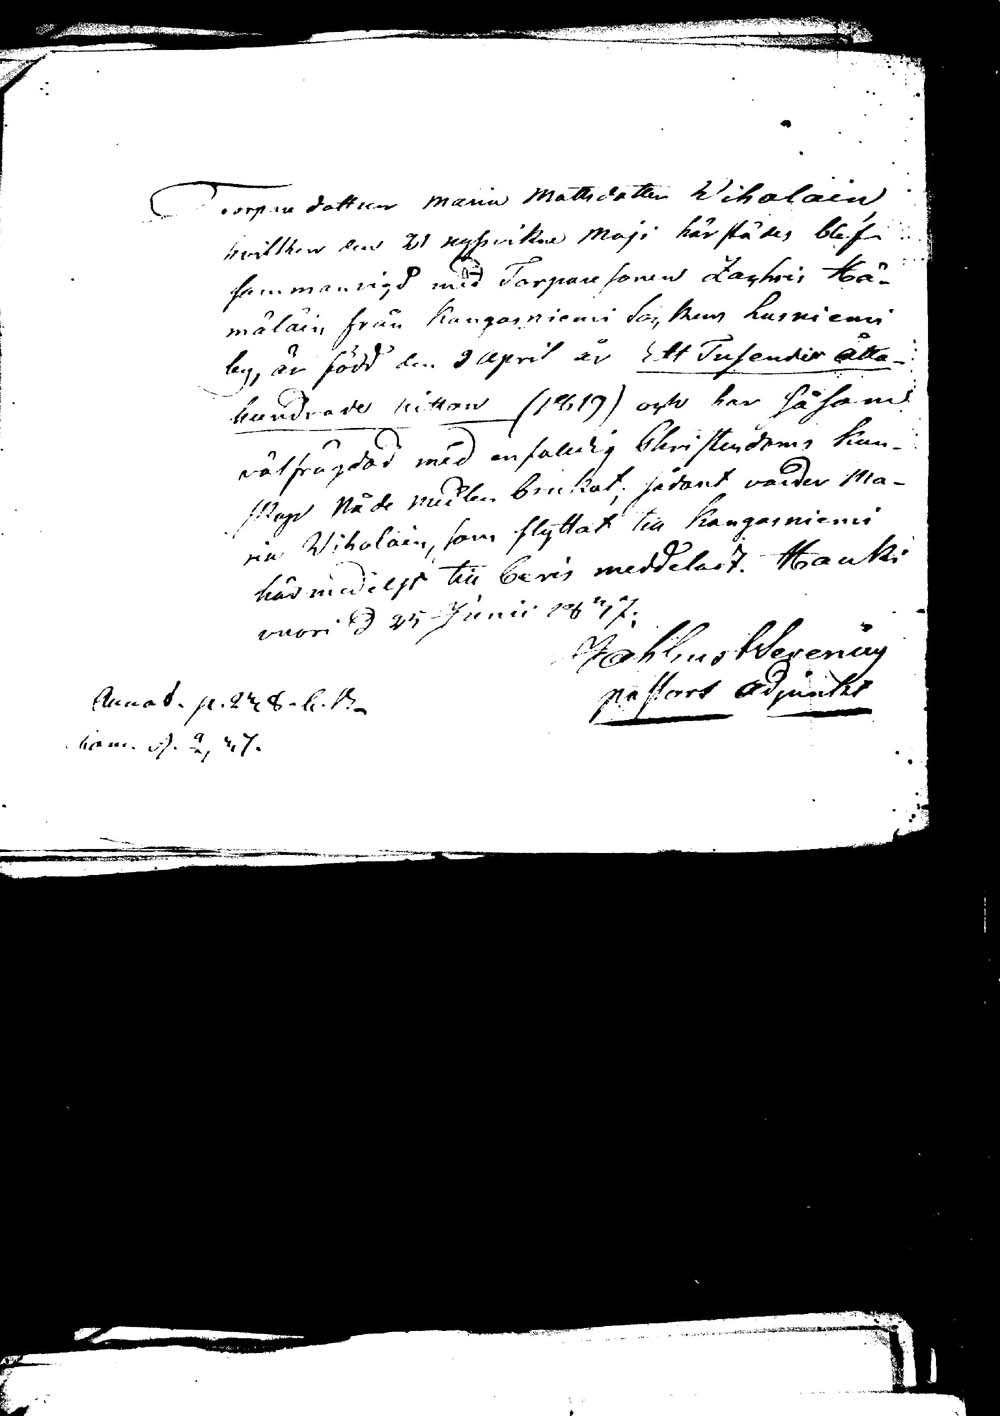 Torpare dottren Maria Mattsdotter Wiholain,
hvilken den 21 nyssvikne Maji härstädes blef
sammanvigd med Torparesonen Zachris Hä-
mäläin från Kangasniemi Sockens Lusniemi
by, är född den 9 April år Ett Tusende åtta-
hundrade nitton (1819) och har såsom
välfrägdad med enfaldig Christendoms kun-
skap Nådemedlen brukat; sådant varder Ma-
ria Wiholain, som flyttat till Kangasniemi
härmedelst till bevis meddeladt. Hauki
vuori d 25 Junii 1847.
Wereniuy
pastors adjunkt
Annot. p. 248.